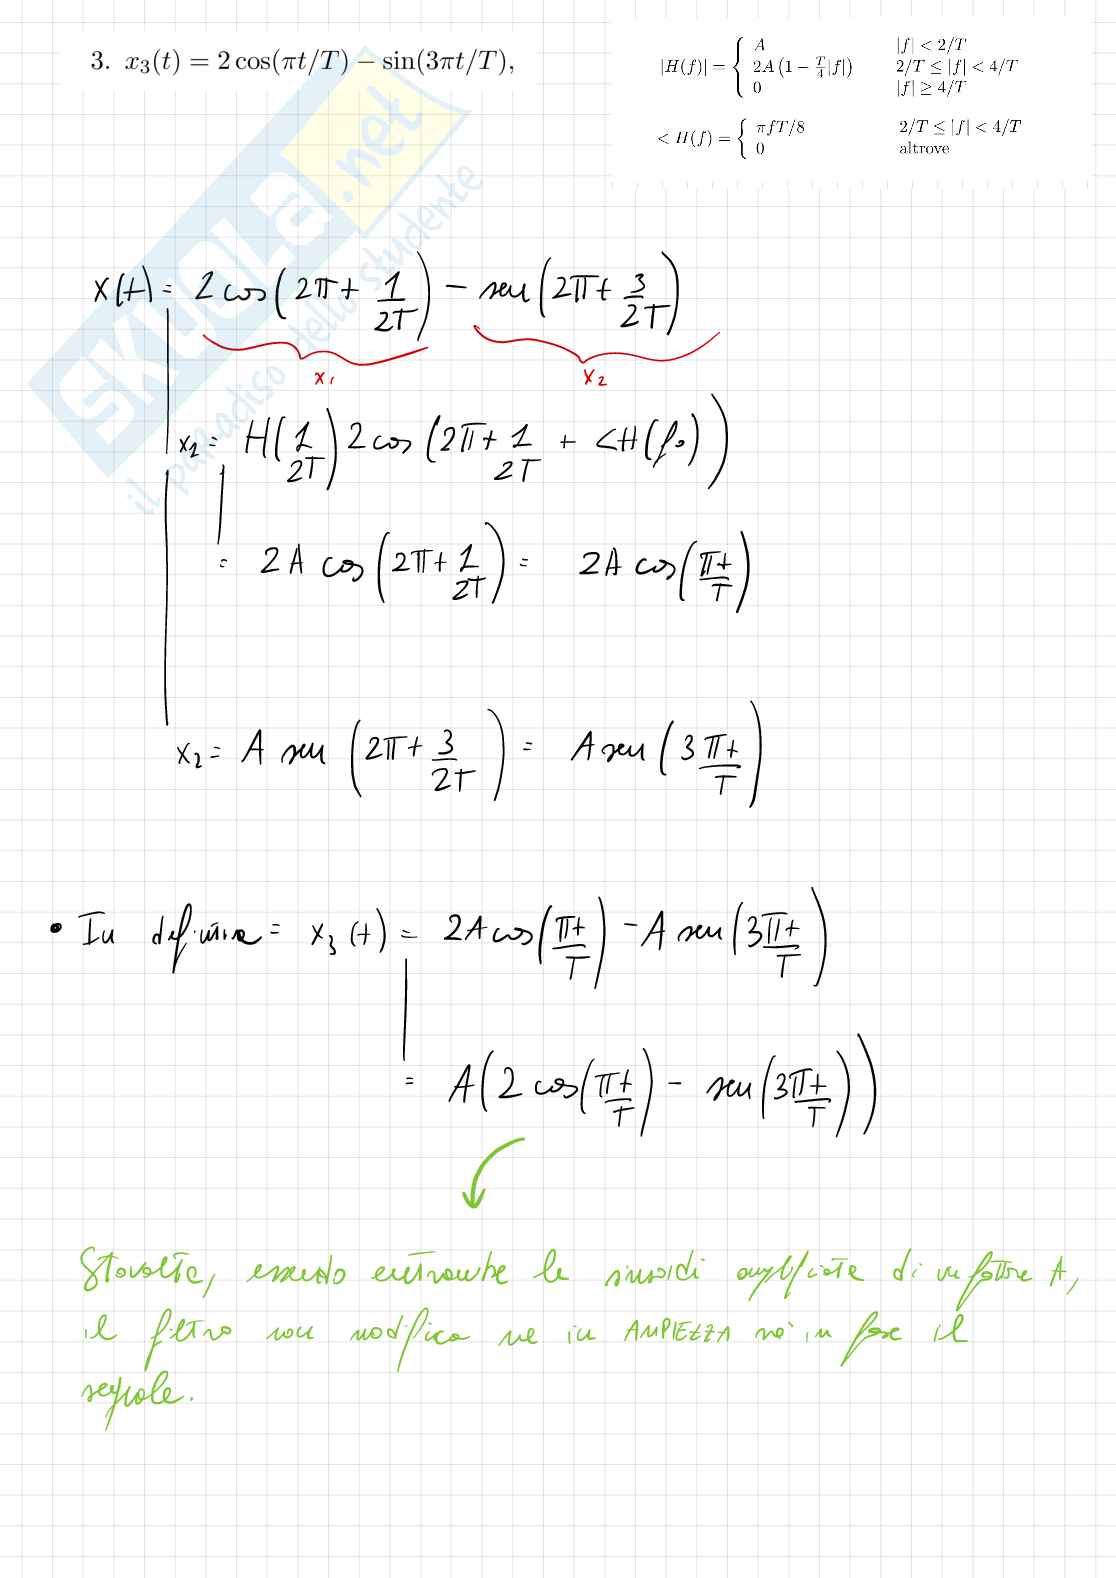 3. x₃(t) = 2 cos(πt/T) − sin(3πt/T),
|H(f)| = { A |f| < 2/T
2A (1 − T/4 |f|) 2/T ≤ |f| < 4/T
0 |f| ≥ 4/T
< H(f) = { πfT/8 2/T ≤ |f| < 4/T
0 altrove
SKUOLA.net
il paradiso dello studente
x(t) = 2 cos(2πt 1/2T) − sen(2πt 3/2T)
x₁ x₂
x₁ = H(1/2T) 2 cos(2πt 1/2T + <H(f₀))
= 2A cos(2πt 1/2T) = 2A cos(πt/T)
x₂ = A sen(2πt 3/2T) = A sen(3πt/T)
• In definitiva = x₃(t) = 2A cos(πt/T) − A sen(3πt/T)
= A(2 cos(πt/T) − sen(3πt/T))
Stavolta, essendo entrambe le sinusoidi amplificate di un fattore A,
il filtro non modifica ne in AMPIEZZA nè in fase il
segnale.